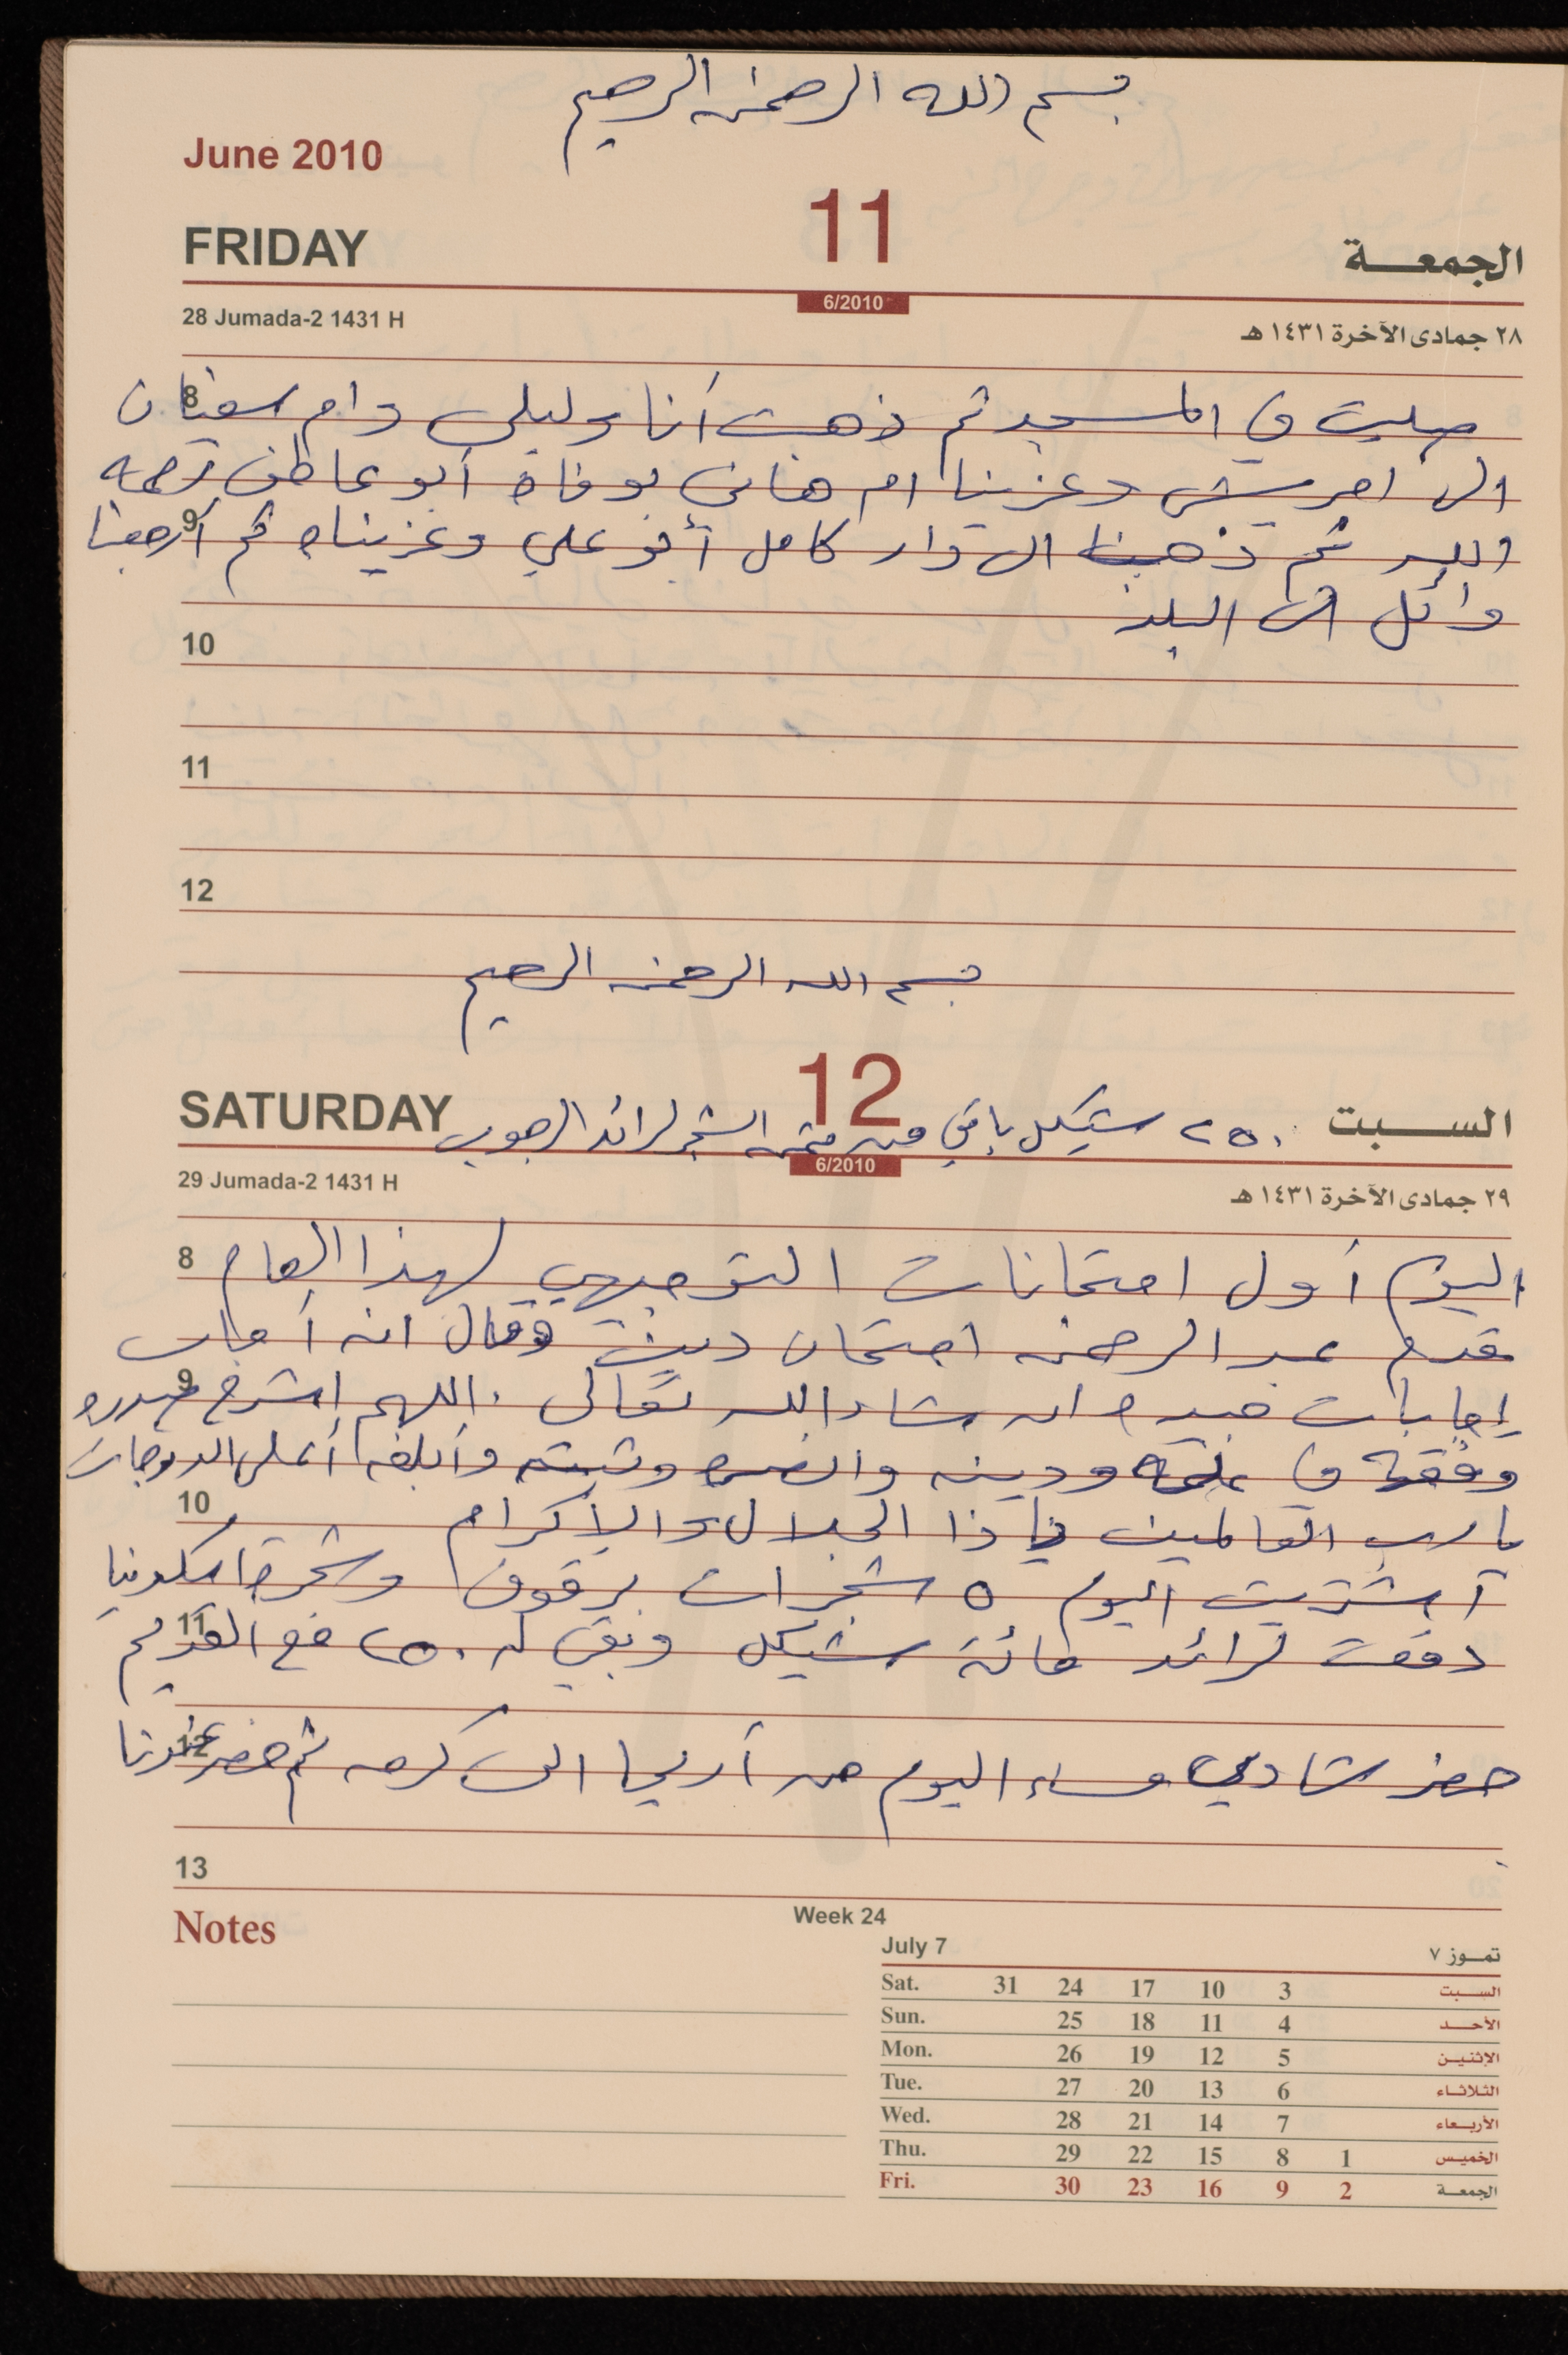 بسم الله الرحمن الرحيم
June 2010
FRIDAY 11 الجمعة
6/2010
28 Jumada-2 1431 H ٢٨ جمادى الآخرة ١٤٣١ هـ
8
صليت في المسجد ثم ذهبت أنا وليلى وام سفيان
الى امريش وعزينا ام هاني بوفاة أبو عاطف رحمه
9
الله ثم ذهبنا الى دار كامل أبو علي وعزيناه ثم أرجعنا
وائل الى البلد
10
11
12
بسم الله الرحمن الرحيم
SATURDAY 12 السبت
٢٥٠ شيكل باقي من ثمن الشجر لرائد الرجوب
6/2010
29 Jumada-2 1431 H ٢٩ جمادى الآخرة ١٤٣١ هـ
8
اليوم أول امتحانات التوجيهي لهذا العام
قدم عبد الرحمن امتحان دين وقال انه أجاب
9
إجابات جيدة ان شاء الله تعالى . اللهم اشرح صدره
وفقهه في دينه وانصره وثبته وأبلغه أعلى الدرجات
10
يا رب العالمين يا ذا الجلال والإكرام
آشتريت اليوم ٥ شجرات برقوق وشجرة اسكدنيا
11
دفعت لرائد مائة شيكل وبقي له ٢٥٠ مع القديم
12
حضر شادي مساء اليوم من أريحا الى كرمه ثم حضر عندنا
13
Notes
Week 24
July 7 تموز ٧
Sat. 31 24 17 10 3 السبت
Sun. 25 18 11 4 الأحد
Mon. 26 19 12 5 الإثنين
Tue. 27 20 13 6 الثلاثاء
Wed. 28 21 14 7 الأربعاء
Thu. 29 22 15 8 1 الخميس
Fri. 30 23 16 9 2 الجمعة